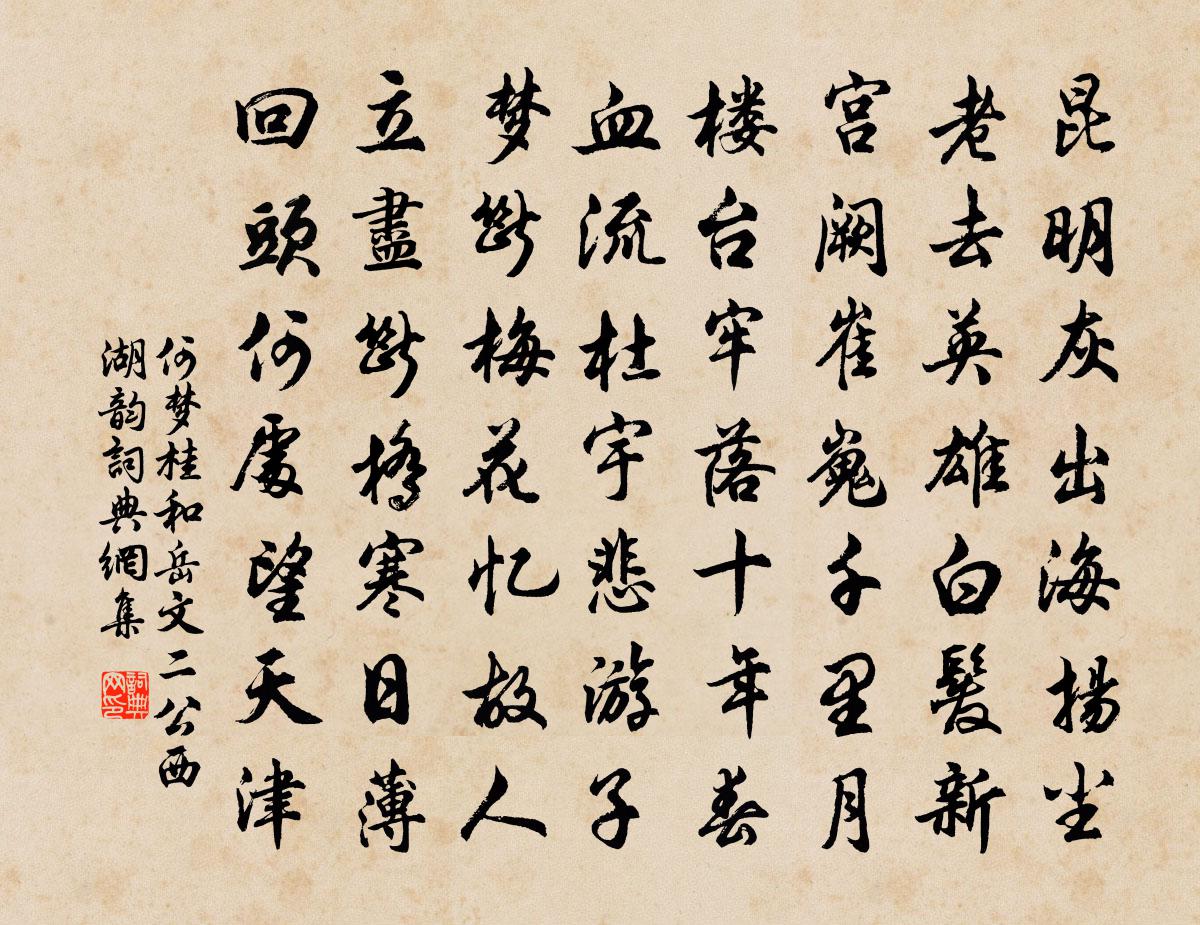 昆明灰出海揚尘
老去英雄白髮新
宫阙崔嵬千里月
楼台牢落十年春
血流杜宇悲游子
梦斷梅花忆故人
立盡斷橋寒日薄
回頭何處望天津
何梦桂和岳文二公西
湖韵詞典網集
詞典
网印